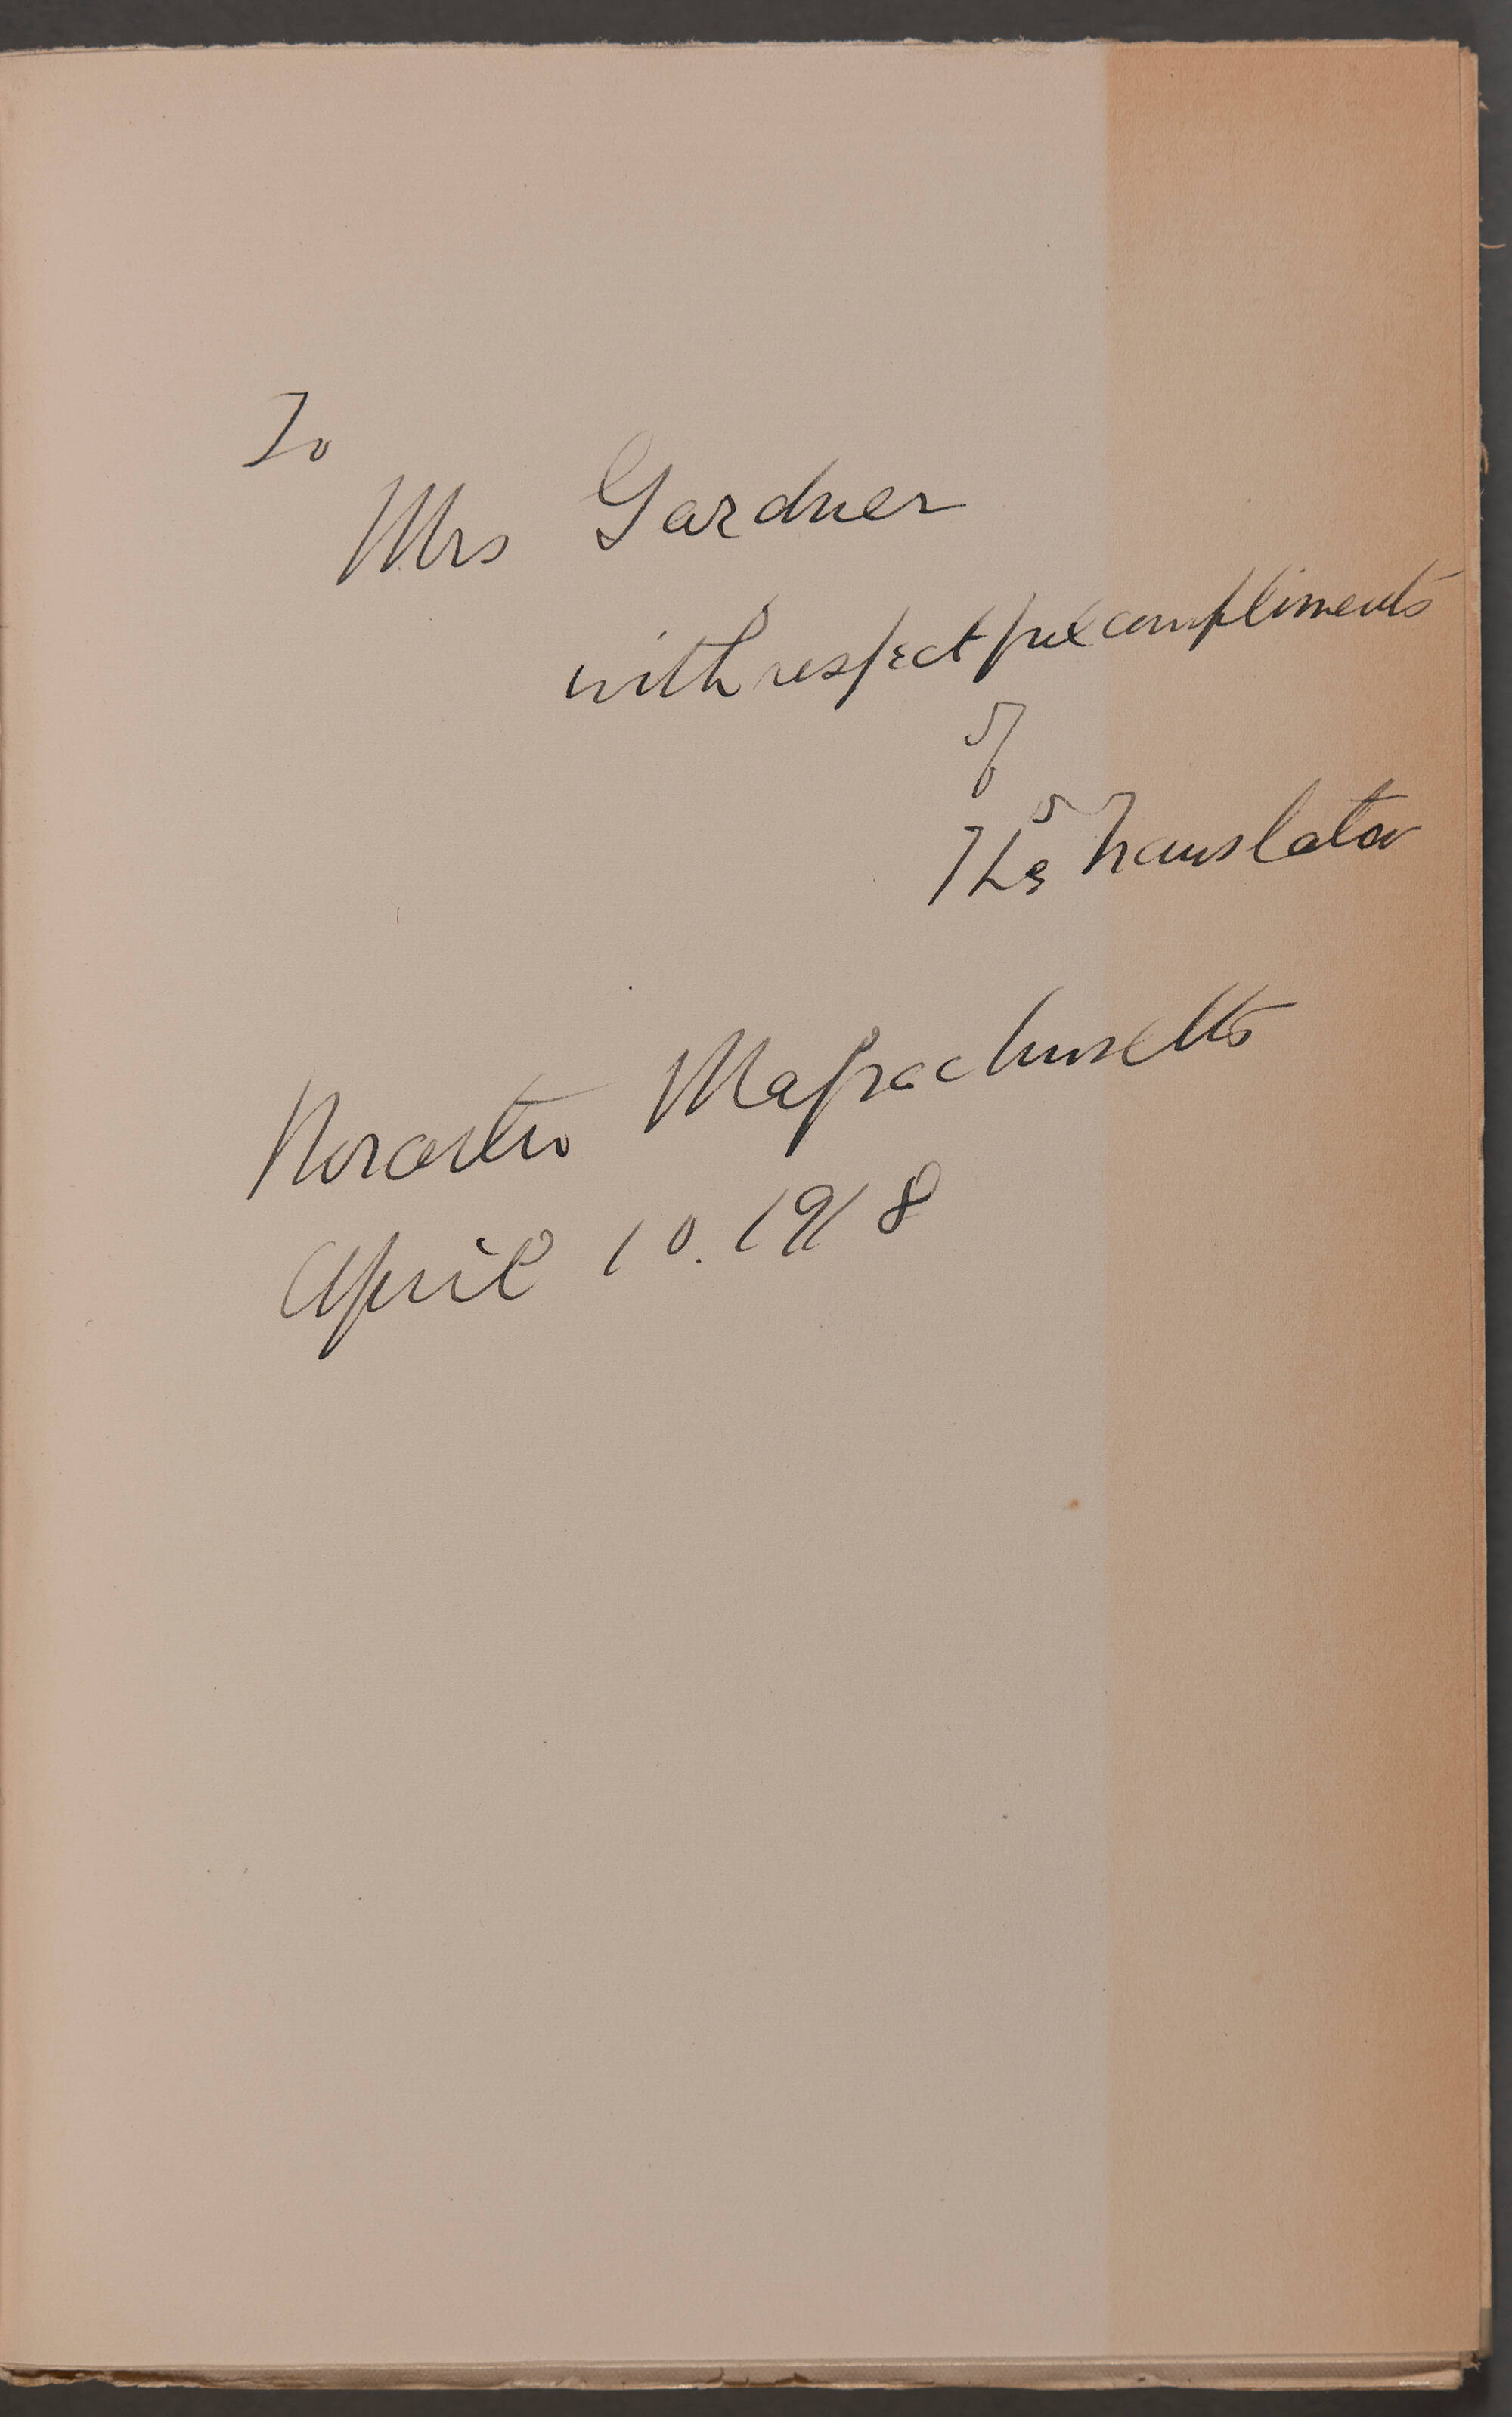 To
Mrs Gardner
with respectful compliments
of
The Translator
Worcester Massachusetts
April 10. 1918